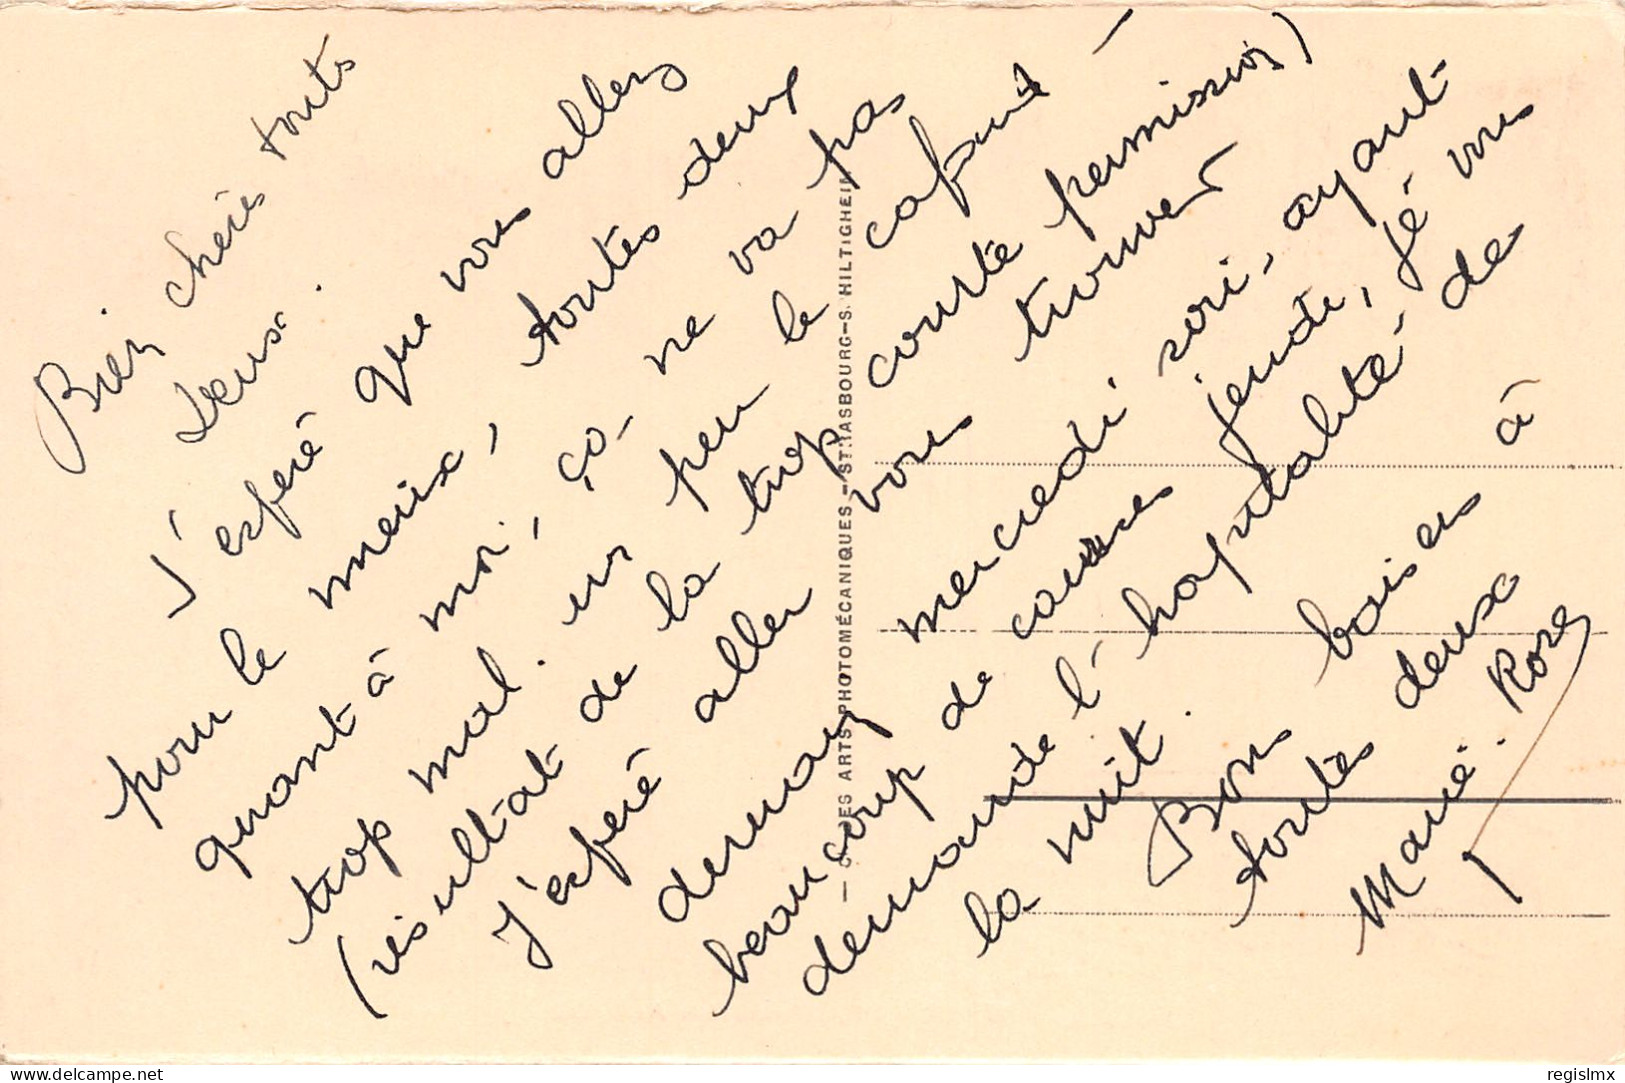 Bien chères toutes
deux.
J'espère que vous allez
pour le mieux, toutes deux
quant à moi, ça ne va pas
trop mal. un peu le cafard
(résultat de la trop courte permission)
J'espère aller vous trouver
demain mercredi soir, ayant
beaucoup de courses jeudi, je vous
demande l'hospitalité de
la nuit.
Bons baisers à
toutes deux
Marie-Rose
ES ARTS PHOTOMÉCANIQUES - STRASBOURG-S. HILTIGHEIM
regislmx
© delcampe.net